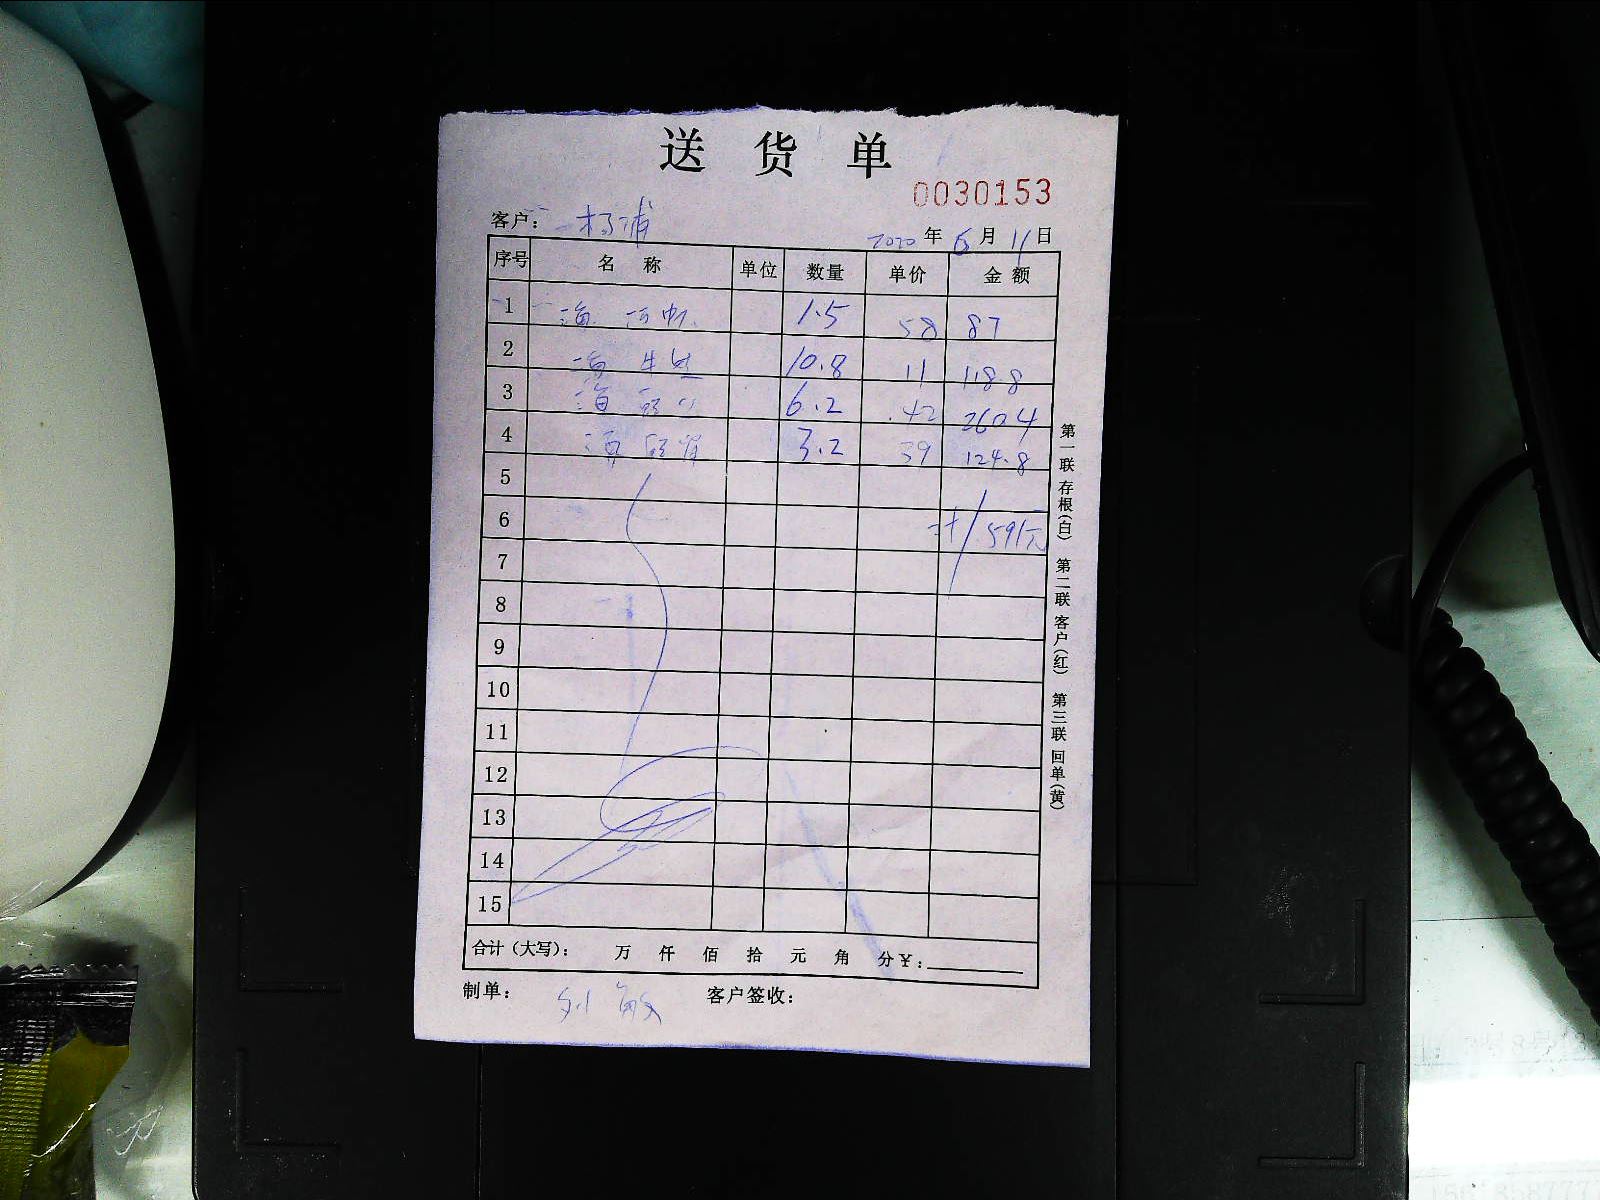 送货单
0030153
客户: 杨浦
2020年6月11日
序号 名称 单位 数量 单价 金额
1 1.5 58 87
2 海 生 10.8 11 118.8
3 海 6.2 42 260.4
4 3.2 39 124.8
5
6 计 591元
7
8
9
10
11
12
13
14
15
合计(大写): 万 仟 佰 拾 元 角 分¥:
制单: 刘敏 客户签收:
第一联 存根(白) 第二联 客户(红) 第三联 回单(黄)